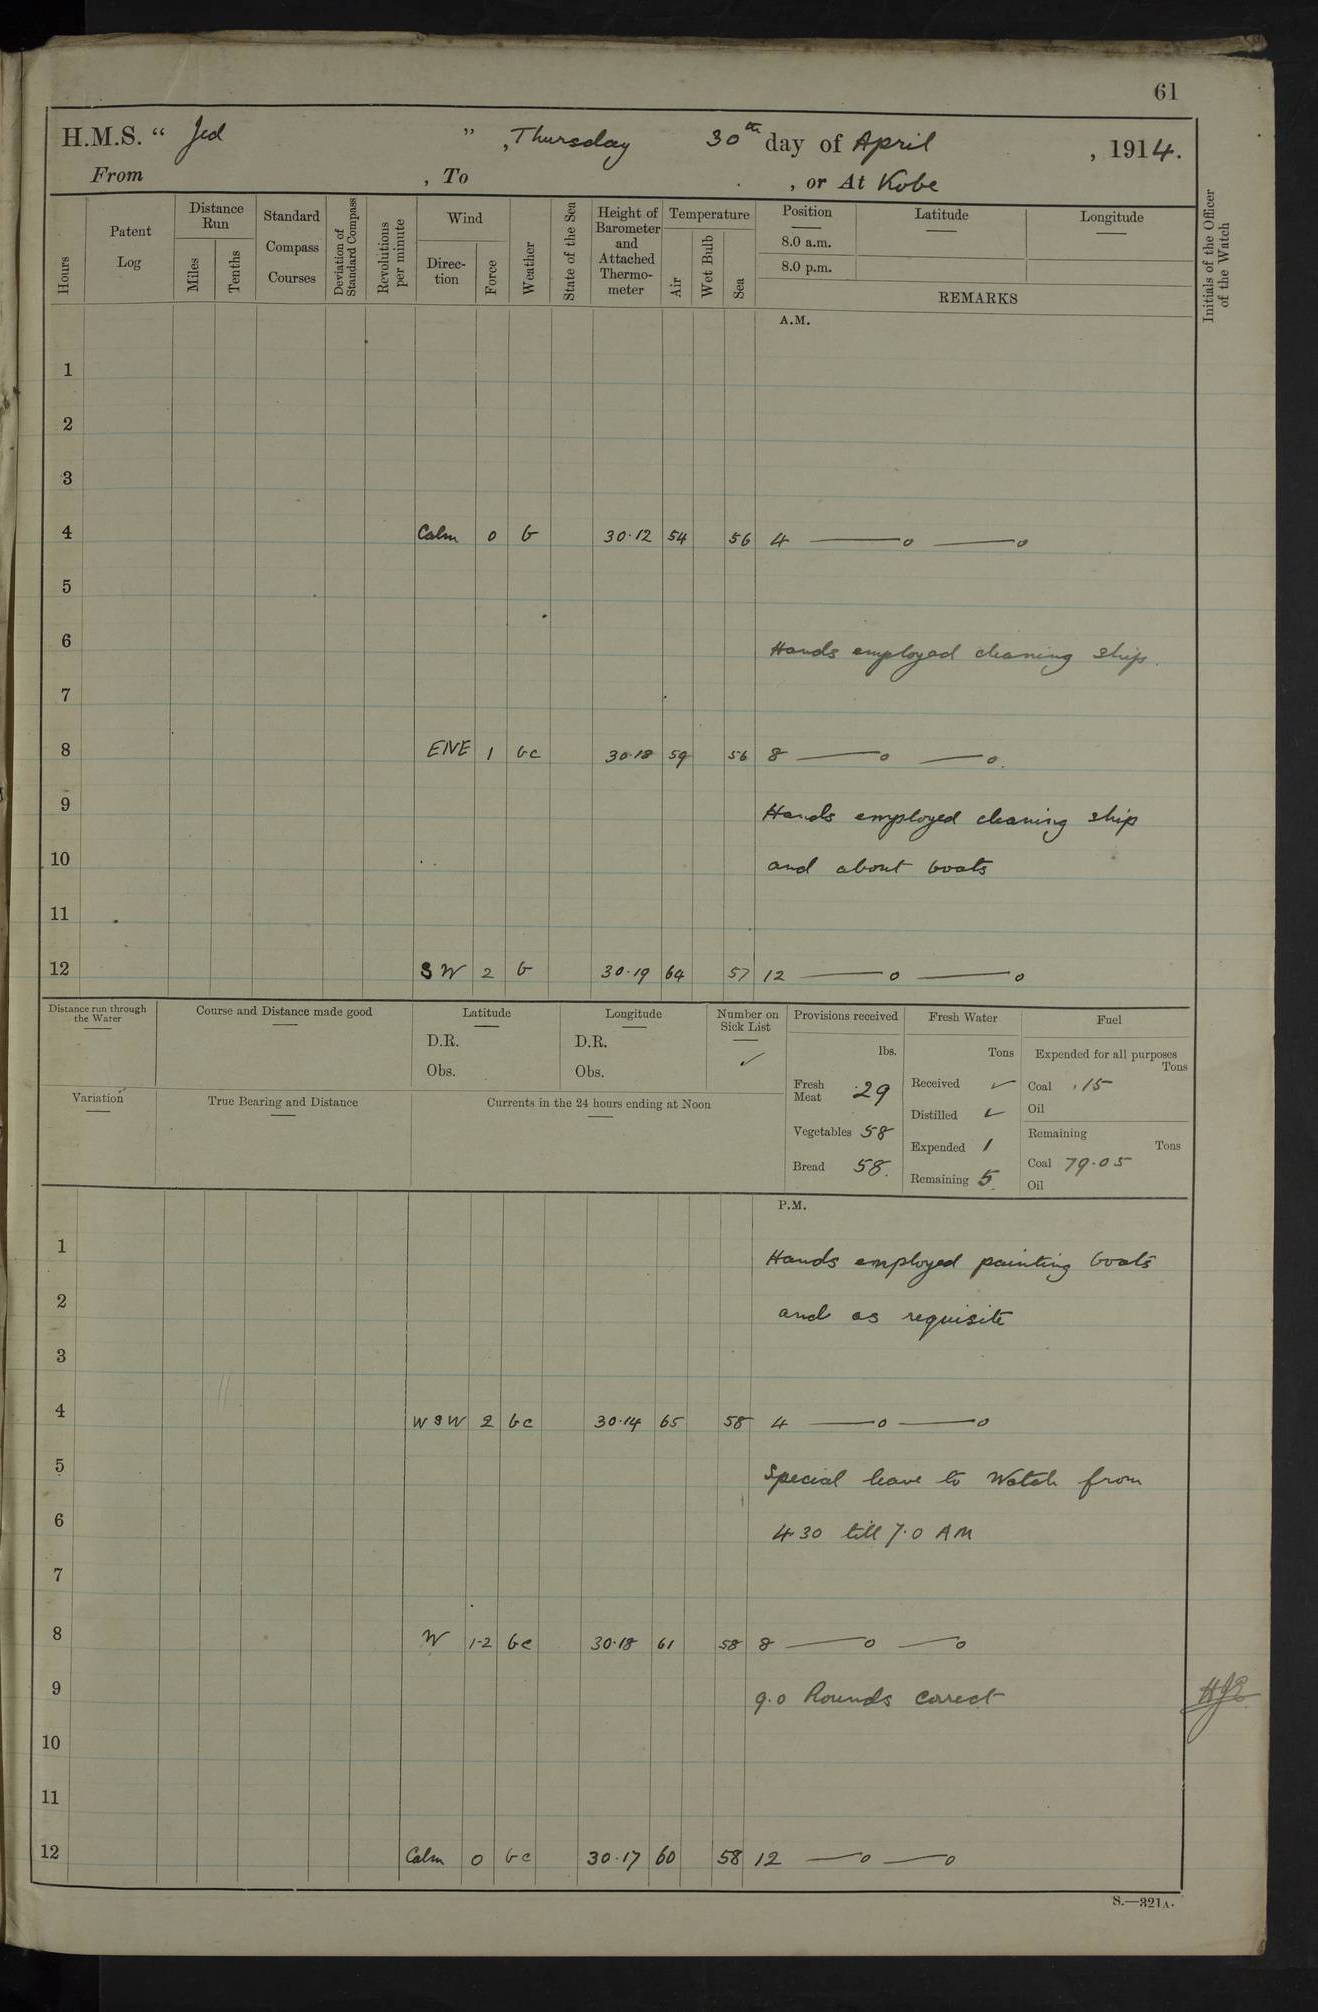 61
H.M.S. “ Jed ” , Thursday 30th day of April , 1914.
From , To , or At Kobe
Hours
Patent Log
Distance Run
Miles Tenths
Standard Compass Courses
Deviation of Standard Compass
Revolutions per minute
Wind
Direc-tion Force
Weather
State of the Sea
Height of Barometer and Attached Thermo-meter
Temperature
Air Wet Bulb Sea
Position Latitude Longitude
8.0 a.m.
8.0 p.m.
REMARKS
Initials of the Officer of the Watch
A.M.
1
2
3
4 Calm 0 b 30.12 54 56 4 ——o ——o
5
6 Hands employed cleaning ship.
7
8 ENE 1 bc 30.18 59 56 8 ——o ——o.
9 Hands employed cleaning ship
10 and about boats
11
12 SW 2 b 30.19 64 57 12 ——o ——o
Distance run through the Water
Course and Distance made good
Latitude
D.R.
Obs.
Longitude
D.R.
Obs.
Number on Sick List
✓
Variation
True Bearing and Distance
Currents in the 24 hours ending at Noon
Provisions received
lbs.
Fresh Meat 29
Vegetables 58
Bread 58.
Fresh Water
Tons
Received ✓
Distilled ✓
Expended 1
Remaining 5.
Fuel
Expended for all purposes
Tons
Coal .15
Oil
Remaining
Tons
Coal 79.05
Oil
P.M.
1 Hands employed painting boats
2 and as requisite
3
4 WSW 2 bc 30.14 65 58 4 ——o ——o
5 Special leave to Watch from
6 4.30 till 7.0 AM
7
8 W 1-2 bc 30.18 61 58 8 ——o ——o
9 9.0 Rounds correct
10
11
12 Calm 0 bc 30.17 60 58 12 ——o ——o
S.—321A.